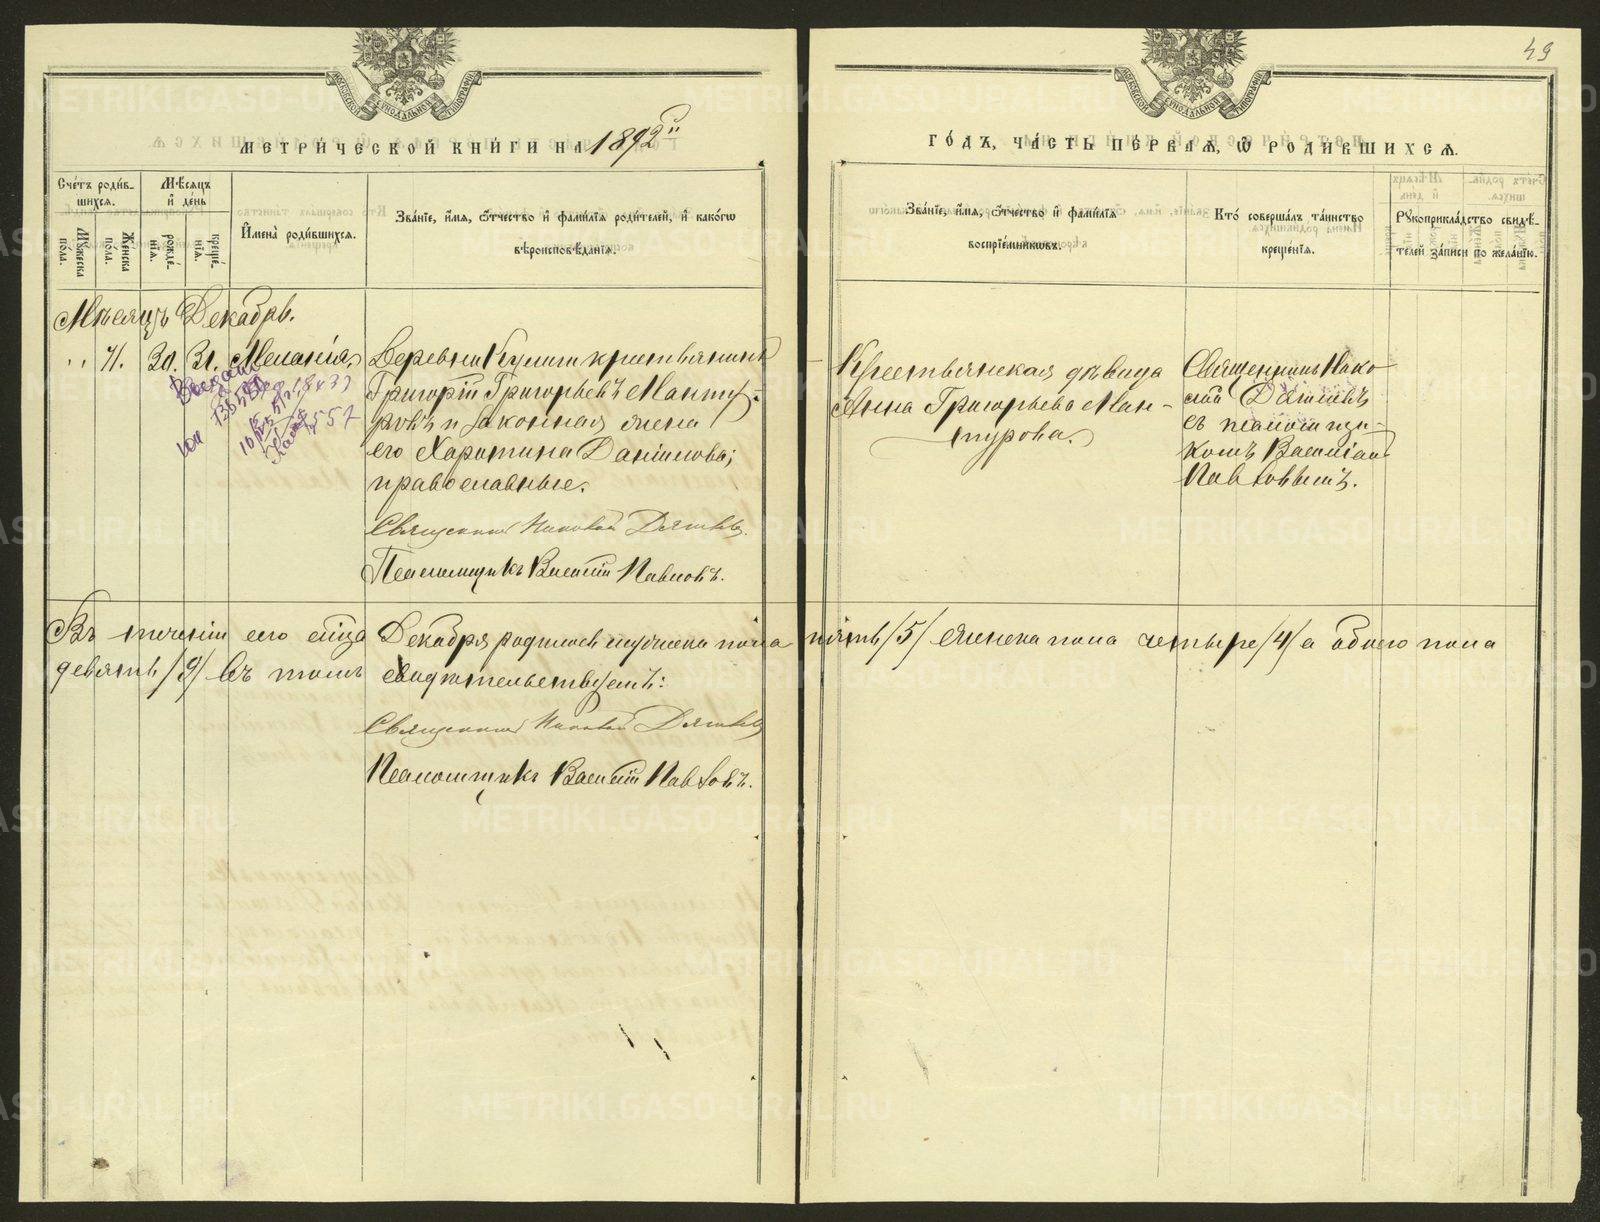 49
МЕТРИ́ЧЕСКОЙ КНИ́ГИ НА 1892й
ГО́ДЪ, ЧА́СТЬ ПЕ́РВАѦ, Ѡ РОДИ́ВШИХСѦ.
Сче́тъ роди́в-
шихся.
Мѣ́сяцъ
и́ де́нь
Му́жеска
по́ла.
Же́нска
по́ла.
рожде́-
нїя.
креще́-
нїя.
И́мена̀ роди́вшихся.
Зва́нїе, и́мя, ѻ́тчество и́ фами́лїя роди́телей, и́ како́гѡ
вѣроисповѣ́данїя.
Зва́нїе, и́мя, ѻ́тчество и́ фами́лїя
воспрїе́мникѡвъ.
Кто́ соверша́лъ та́инство
креще́нїя.
Рꙋкоприкла́дство свидѣ́-
телей за́писи по жела́нїю.
Мѣсяцъ Декабрь.
" 4. 30. 31. Меланія.
Деревни крестьянинъ
Григорій Григорьевъ Манту-
ровъ и законная жена
его Харитина Данилова;
православные.
Священникъ Николай
Псаломщикъ Василій Павловъ.
Крестьянская дѣвица
Анна Григорьева Ман-
турова.
Священникъ Нико-
лай
съ псаломщи-
комъ Василіемъ
Павловымъ.
Въ теченіи сего мѣсяца Декабря родилось мужеска пола пять /5/ женска пола четыре /4/ а обоего пола
девять /9/ въ томъ свидѣтельствуемъ:
Священникъ Николай
Псаломщикъ Василій Павловъ.
METRIKI.GASO-URAL.RU